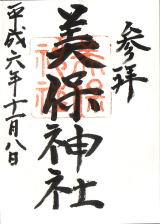 参拝
美保神社
平成六年十一月八日